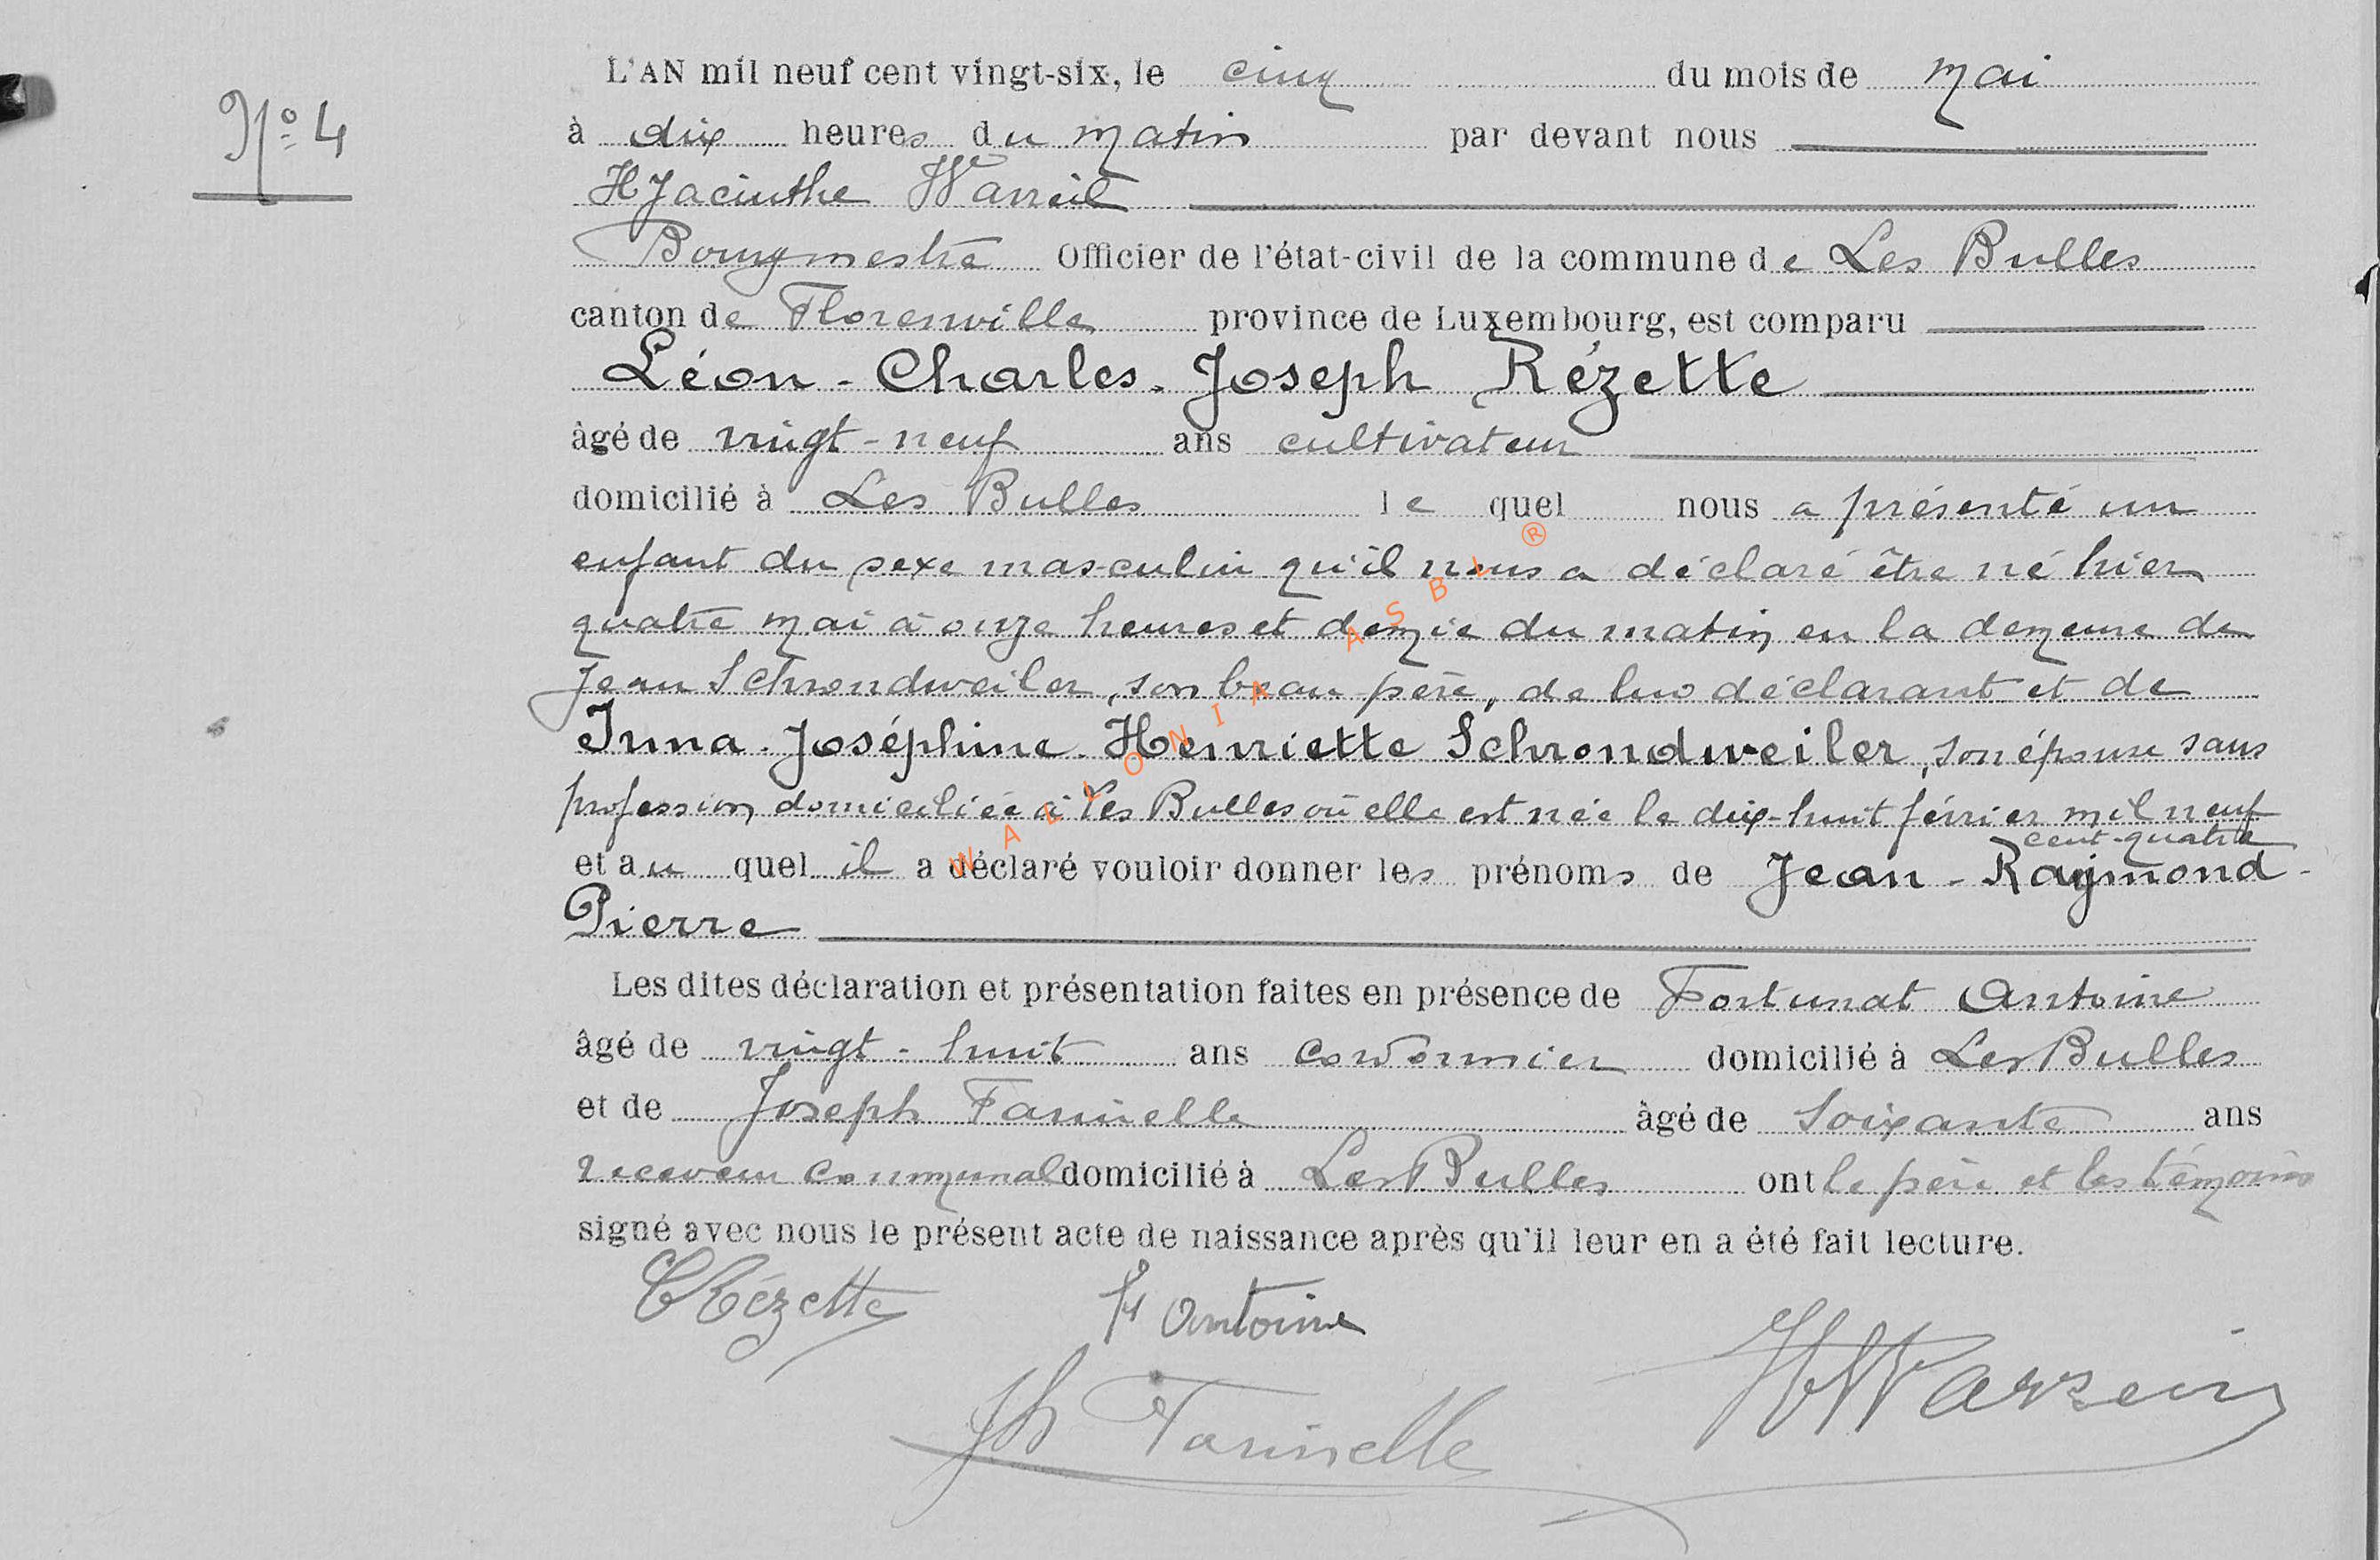 L'AN mil neuf cent vingt-six, le cinq du mois de mai
N° 4
à dix heures du matin par devant nous
Hyacinthe
Bourgmestre Officier de l'état-civil de la commune de Les Bulles
canton de Florenville province de Luxembourg, est comparu
Léon - Charles - Joseph Rézette
âgé de vingt-neuf ans cultivateur
domicilié à Les Bulles lequel nous a présenté un
enfant du sexe masculin qu'il nous a déclaré être né hier
quatre mai à onze heures et demie du matin en la demeure de
Jean Schrondweiler, son beau-père, de lui déclarant et de
Irma - Joséphine - Henriette Schrondweiler, son épouse sans
profession domiciliée à Les Bulles où elle est née le dix-huit février mil neuf
cent-quatre
et auquel il a déclaré vouloir donner les prénoms de Jean - Raymond -
Pierre
Les dites déclaration et présentation faites en présence de Fortunat Antoine
âgé de vingt-huit ans cordonnier domicilié à Les Bulles
et de Joseph âgé de soixante ans
receveur communal domicilié à Les Bulles ont le père et les témoins
signé avec nous le présent acte de naissance après qu'il leur en a été fait lecture.
Rézette Antoine
WALLONIA ASBL ®